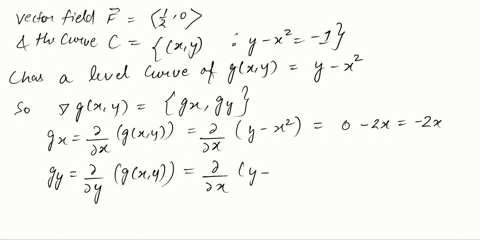 vector field F⃗ = ⟨1/2, 0⟩
& the curve C = {(x,y) : y-x² = -1}
C has a level curve of g(x,y) = y-x²
So ∇g(x,y) = {gx, gy}
gx = ∂/∂x (g(x,y)) = ∂/∂x (y-x²) = 0 -2x = -2x
gy = ∂/∂y (g(x,y)) = ∂/∂x (y-